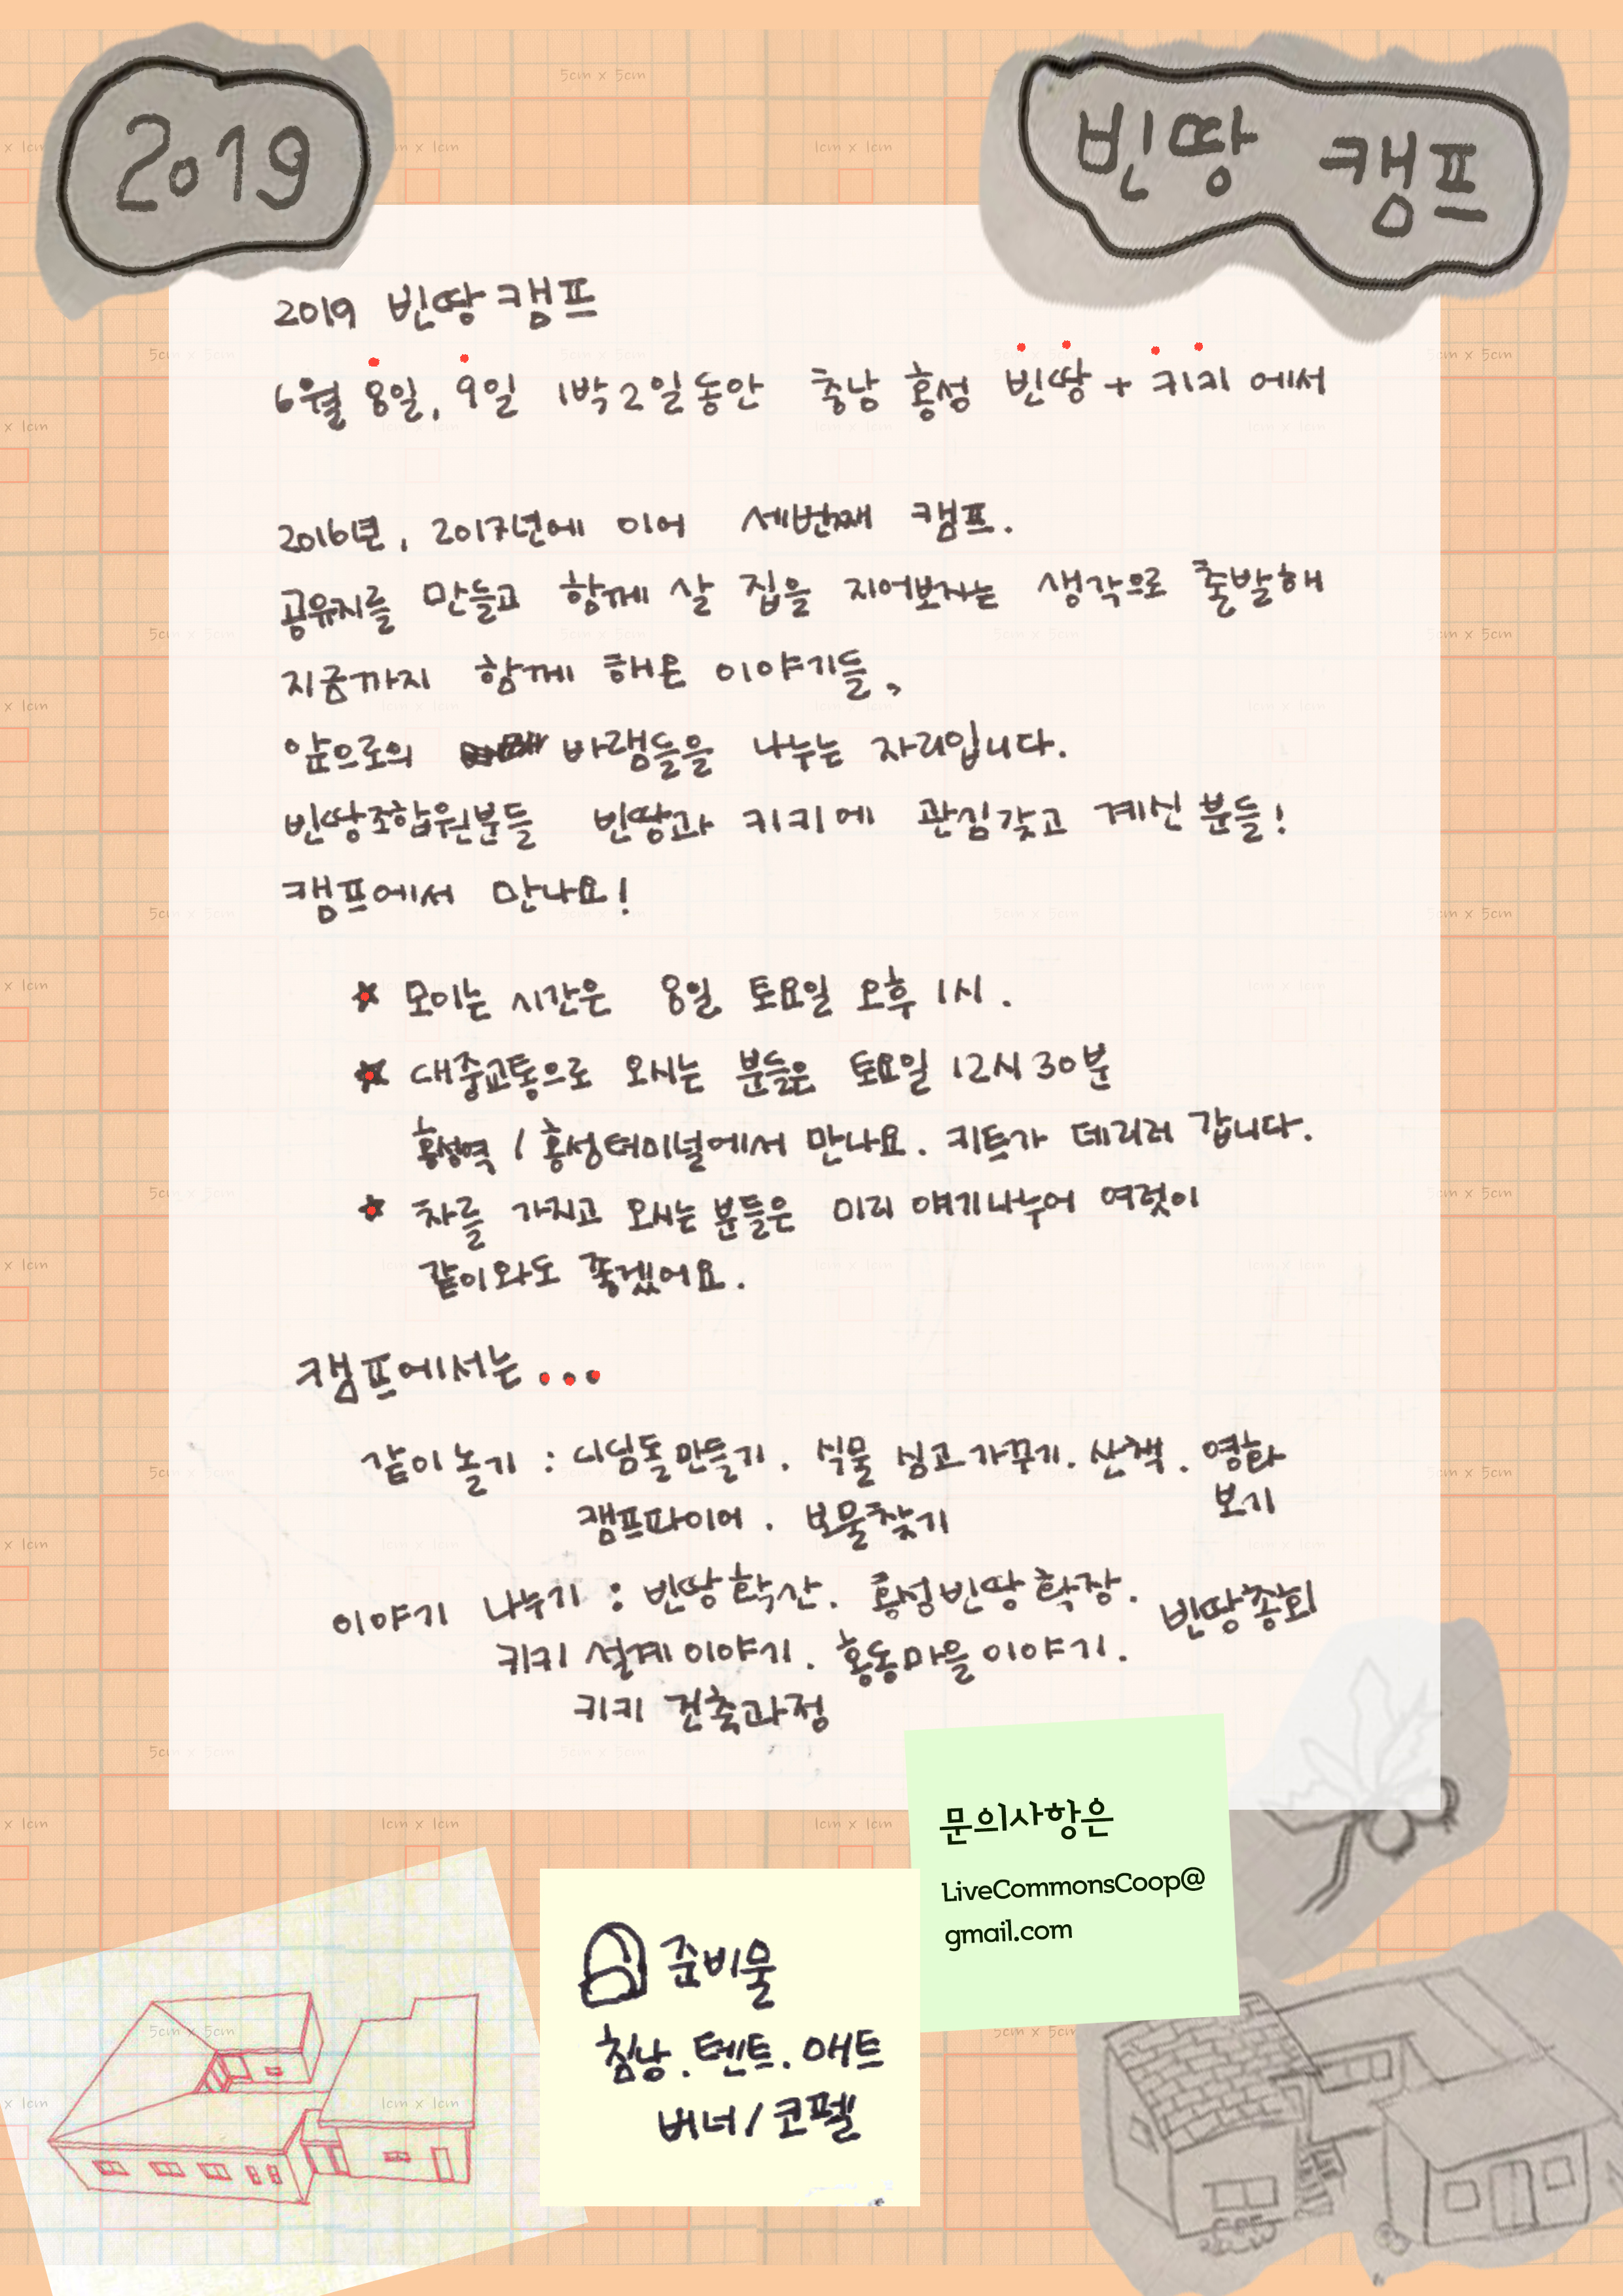 2019
빈땅 캠프
2019 빈땅캠프
6월 8일, 9일 1박2일동안 충남 홍성 빈땅 + 키키 에서
2016년, 2017년에 이어 세번째 캠프.
공유지를 만들고 함께 살 집을 지어보자는 생각으로 출발해
지금까지 함께 해온 이야기들,
앞으로의 바램들을 나누는 자리입니다.
빈땅조합원분들 빈땅과 키키에 관심갖고 계신 분들!
캠프에서 만나요!
모이는 시간은 8일 토요일 오후 1시.
대중교통으로 오시는 분들은 토요일 12시 30분
홍성역 / 홍성터미널에서 만나요. 키트가 데리러 갑니다.
차를 가지고 오시는 분들은 미리 얘기나누어 여럿이
같이와도 좋겠어요.
캠프에서는...
같이 놀기 : 디딤돌만들기. 식물 심고 가꾸기. 산책. 영화
보기
캠프파이어. 보물찾기
이야기 나누기 : 빈땅확산. 홍성빈땅확장. 빈땅총회
키키 설계이야기. 홍동마을이야기.
키키 건축과정
문의사항은
LiveCommonsCoop@
gmail.com
준비물
침낭. 텐트. 매트
버너/코펠